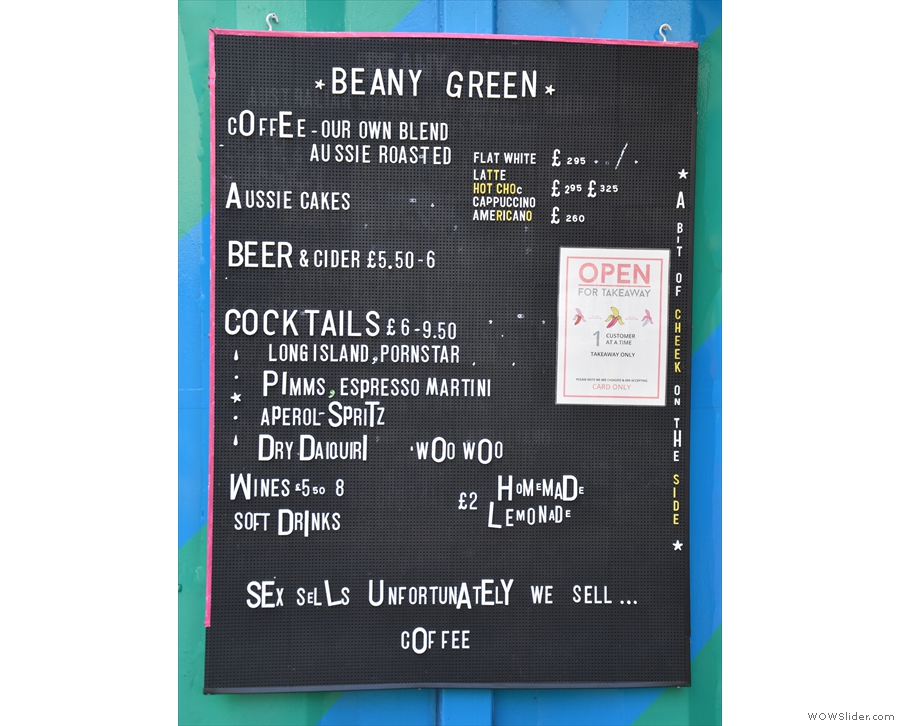 *BEANY GREEN*
COFFEE - OUR OWN BLEND
AUSSIE ROASTED
FLAT WHITE £ 295
LATTE
HOT CHOc £ 295 £ 325
CAPPUCCINO
AMERICANO £ 260
AUSSIE CAKES
BEER & CIDER £5.50 - 6
COCKTAILS £6 - 9.50
LONG ISLAND, PORNSTAR
PIMMS, ESPRESSO MARTINI
APEROL-SPRITZ
DRY DAIQUIRI ·WOO WOO
WINES £550 8
SOFT DRINKS
£2 HOMEMADE
LEMONADE
SEX SELLS UNFORTUNATELY WE SELL ...
COFFEE
OPEN
FOR TAKEAWAY
1 CUSTOMER
AT A TIME
TAKEAWAY ONLY
PLEASE NOTE WE ARE CASHLESS & ARE ACCEPTING
CARD ONLY
* A BIT OF CHEEK ON THE SIDE *
WOWSlider.com